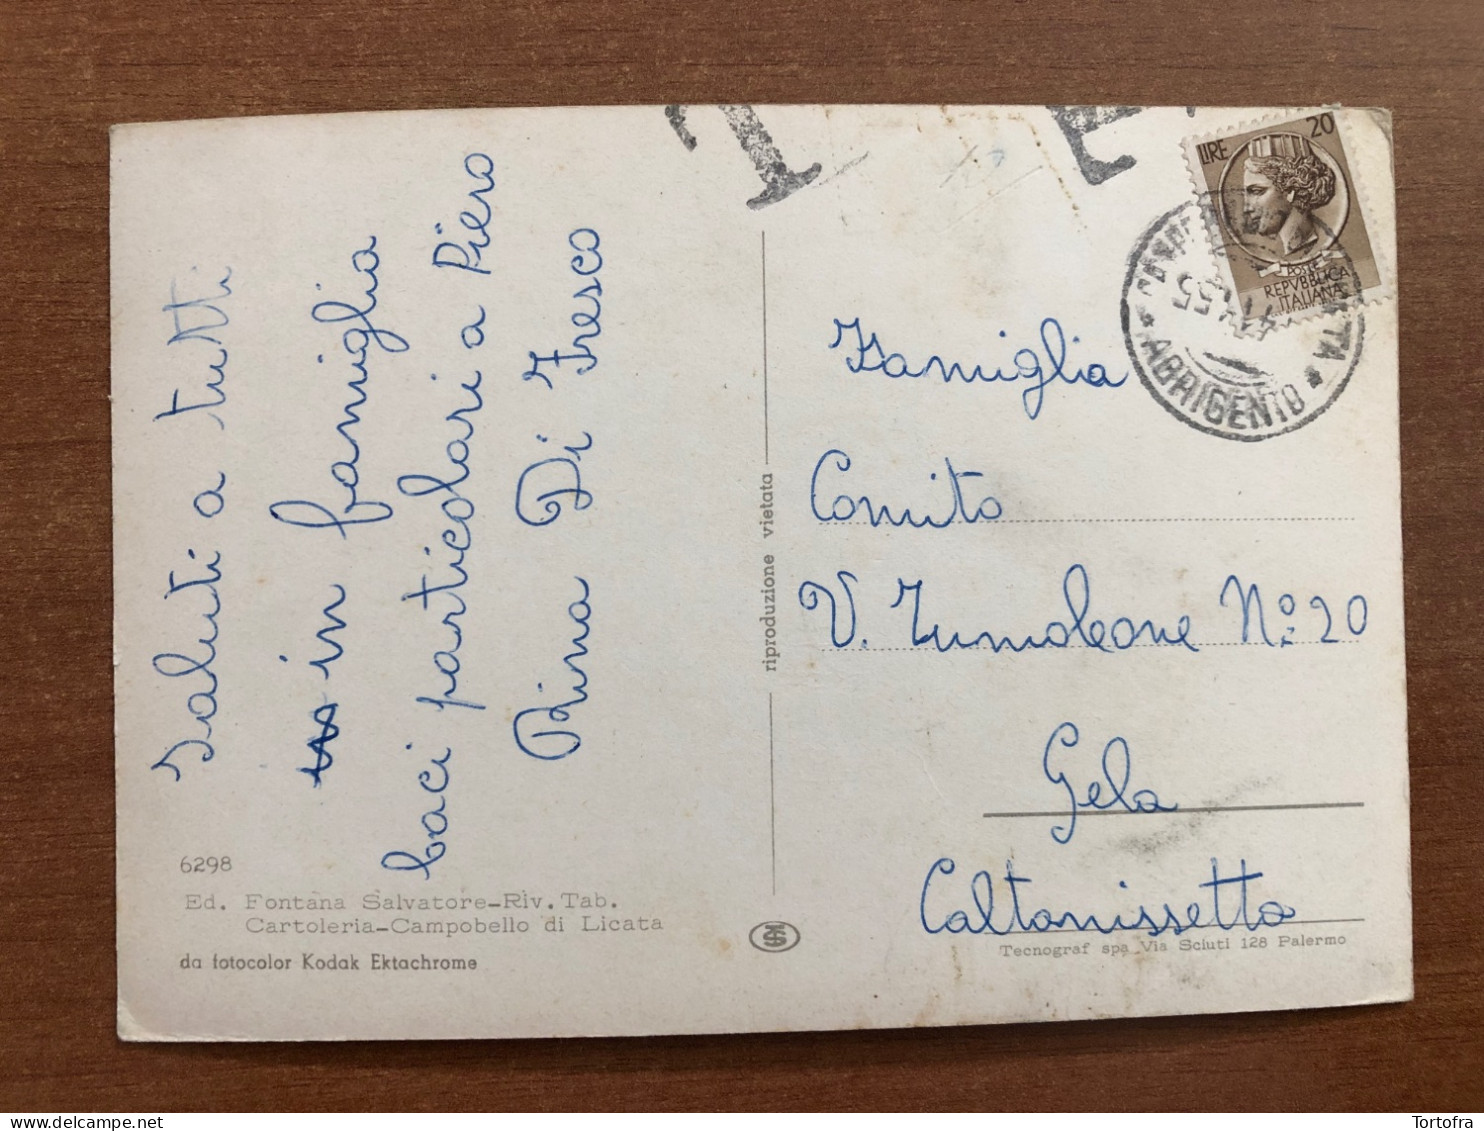 T E
Saluti a tutti
in famiglia
baci particolari a Piero
Rina Di Fresco
6298
Ed. Fontana Salvatore-Riv. Tab.
Cartoleria-Campobello di Licata
da fotocolor Kodak Ektachrome
riproduzione vietata
LIRE 20
POSTE
REPVBBLICA
ITALIANA
* AGRIGENTO *
Famiglia
Comito
V. Tumoleone N:º 20
Gela
Caltanissetta
Tecnograf spa Via Sciuti 128 Palermo
Tortofra